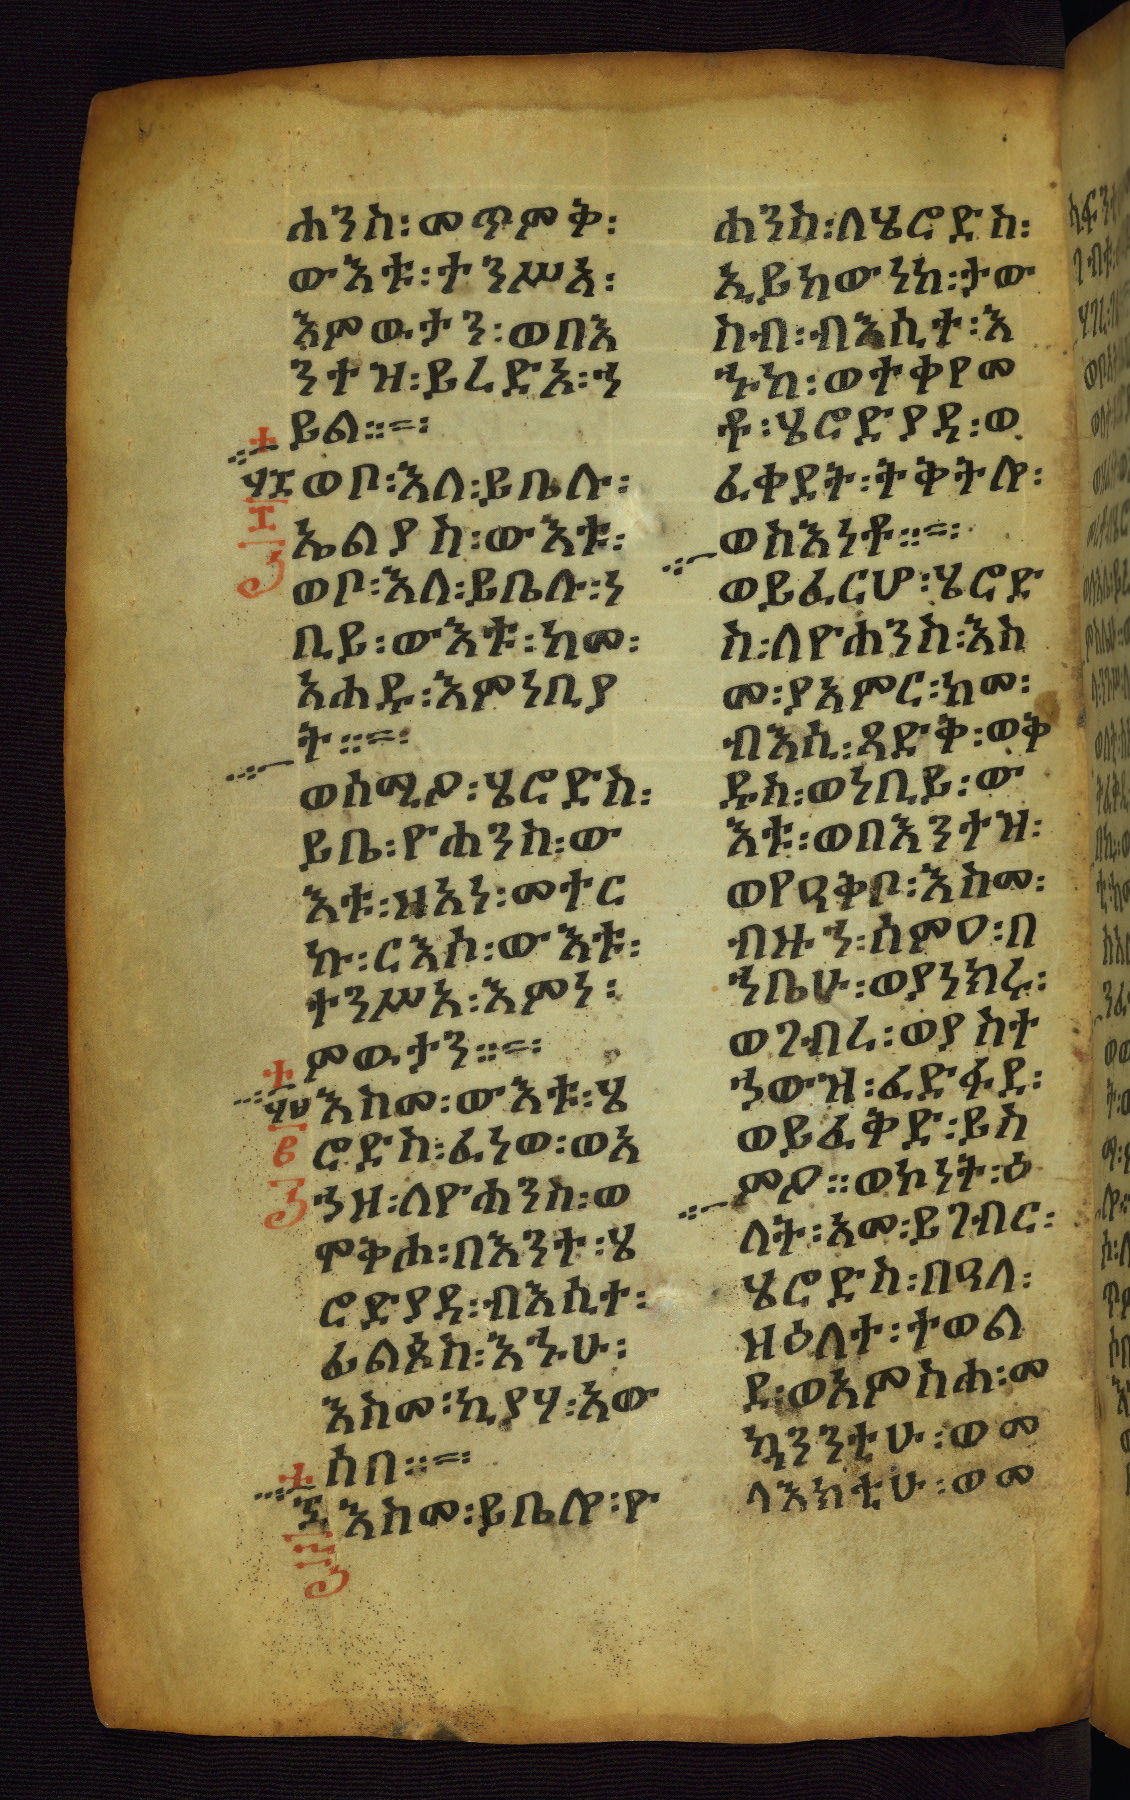 ሐንስ፡መጥምቅ፡
ውእቱ፡ተንሥአ፡
እምዉታን፡ወበእ
ንተዝ፡ይረድእ፡ኀ
ይል።=፡
ወቦ፡እለ፡ይቤሉ፡
ኤልያስ፡ውእቱ፡
ወቦ፡እለ፡ይቤሉ፡ነ
ቢይ፡ውእቱ፡ከመ፡
አሐዱ፡እምነቢያ
ት።=፡
ወሰሚዖ፡ሄሮድስ፡
ይቤ፡ዮሐንስ፡ው
እቱ፡ዘአነ፡መተር
ኩ፡ርእሰ፡ውእቱ፡
ተንሥአ፡እምነ፡
ምዉታን።=፡
እስመ፡ውእቱ፡ሄ
ሮድስ፡ፈነወ፡ወአ
ኀዘ፡ለዮሐንስ፡ወ
ሞቅሐ፡በእንተ፡ሄ
ሮድያዳ፡ብእሲተ፡
ፊልጶስ፡እኁሁ፡
እስመ፡ኪያሃ፡አው
ሰበ።=፡
እስመ፡ይቤሎ፡ዮ
ሐንስ፡ለሄሮድስ፡
ኢይከውነከ፡ታው
ስብ፡ብእሲተ፡እ
ኁከ፡ወተቀየመ
ቶ፡ሄሮድያዳ፡ወ
ፈቀደት፡ትቅትሎ፡
ወስእነቶ።=፡
ወይፈርሆ፡ሄሮድ
ስ፡ለዮሐንስ፡እስ
መ፡ያአምር፡ከመ፡
ብእሲ፡ጻድቅ፡ወቅ
ዱስ፡ወነቢይ፡ው
እቱ፡ወበእንተዝ፡
ወየዓቅቦ፡እስመ፡
ብዙኀ፡ሰምዐ፡በ
ኀቤሁ፡ወያነክር፡
ወገብረ፡ወያስተ
ኀውዝ፡ፈድፋደ፡
ወይፈቅድ፡ይስ
ምዖ።ወኮነት፡ዕ
ለት፡አመ፡ይገብር፡
ሄሮድስ፡በዓለ፡
ዘዕለተ፡ተወል
ደ፡ወአምስሐ፡መ
ኳንንቲሁ፡ወመ
ላእክቲሁ፡ወመ